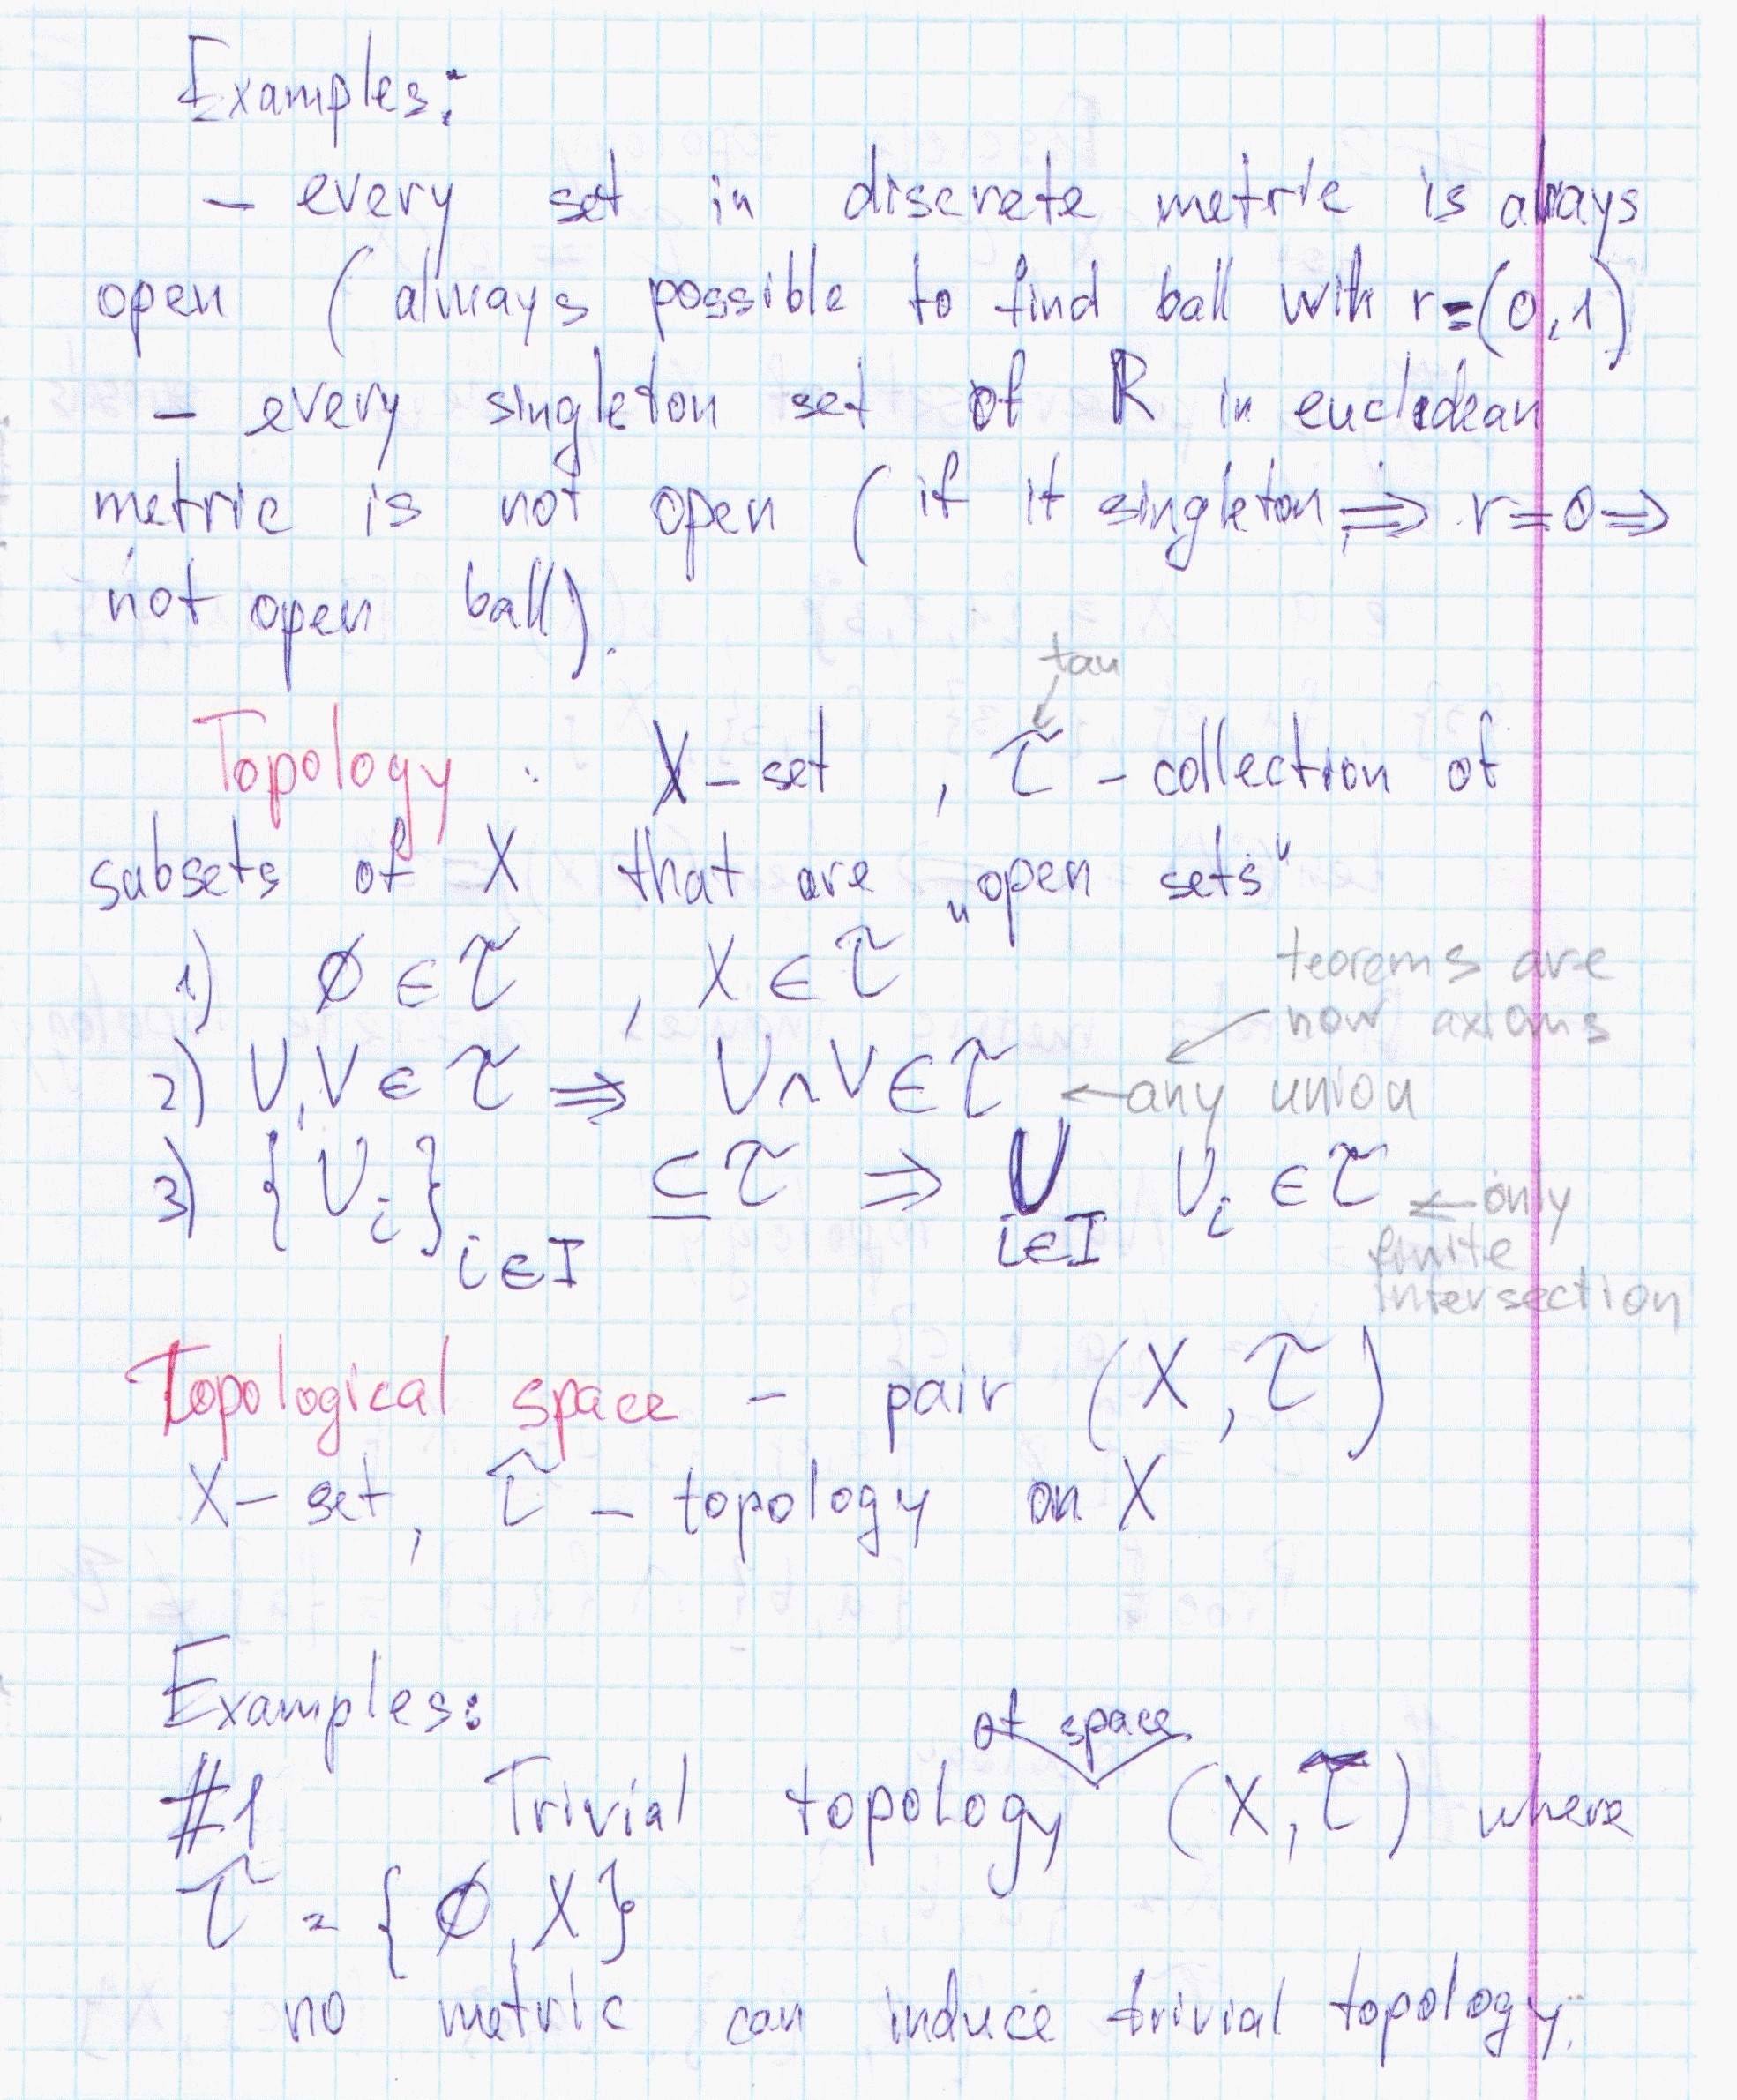 Examples:
- every set in discrete metric is always
open (always possible to find ball with r=(0,1)
- every singleton set of ℝ in euclidean
metric is not open (if it singleton ⇒ r=0 ⇒
not open ball).
tau
Topology : X-set , τ - collection of
subsets of X that are „open sets"
1) ∅ ∈ τ , X ∈ τ
teorems are
now axioms
2) U,V ∈ τ ⇒ U∩V ∈ τ ← any union
3) {U_i}_{i∈I} ⊆ τ ⇒ ⋃_{i∈I} U_i ∈ τ ← only
finite
intersection
Topological space - pair (X, τ)
X- set, τ - topology on X
Examples:
of space
#1 Trivial topology (X, τ) where
τ = {∅, X}
no metric can induce trivial topology.